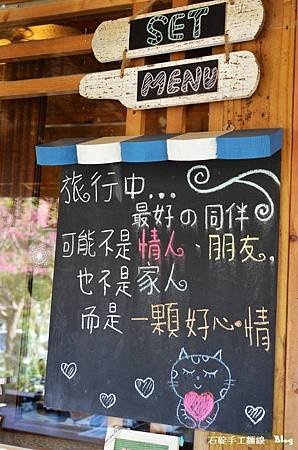 SET
MENU
旅行中...
最好の同伴
可能不是情人、朋友,
也不是家人
而是一顆好心情
石碇手工麵線 Blog